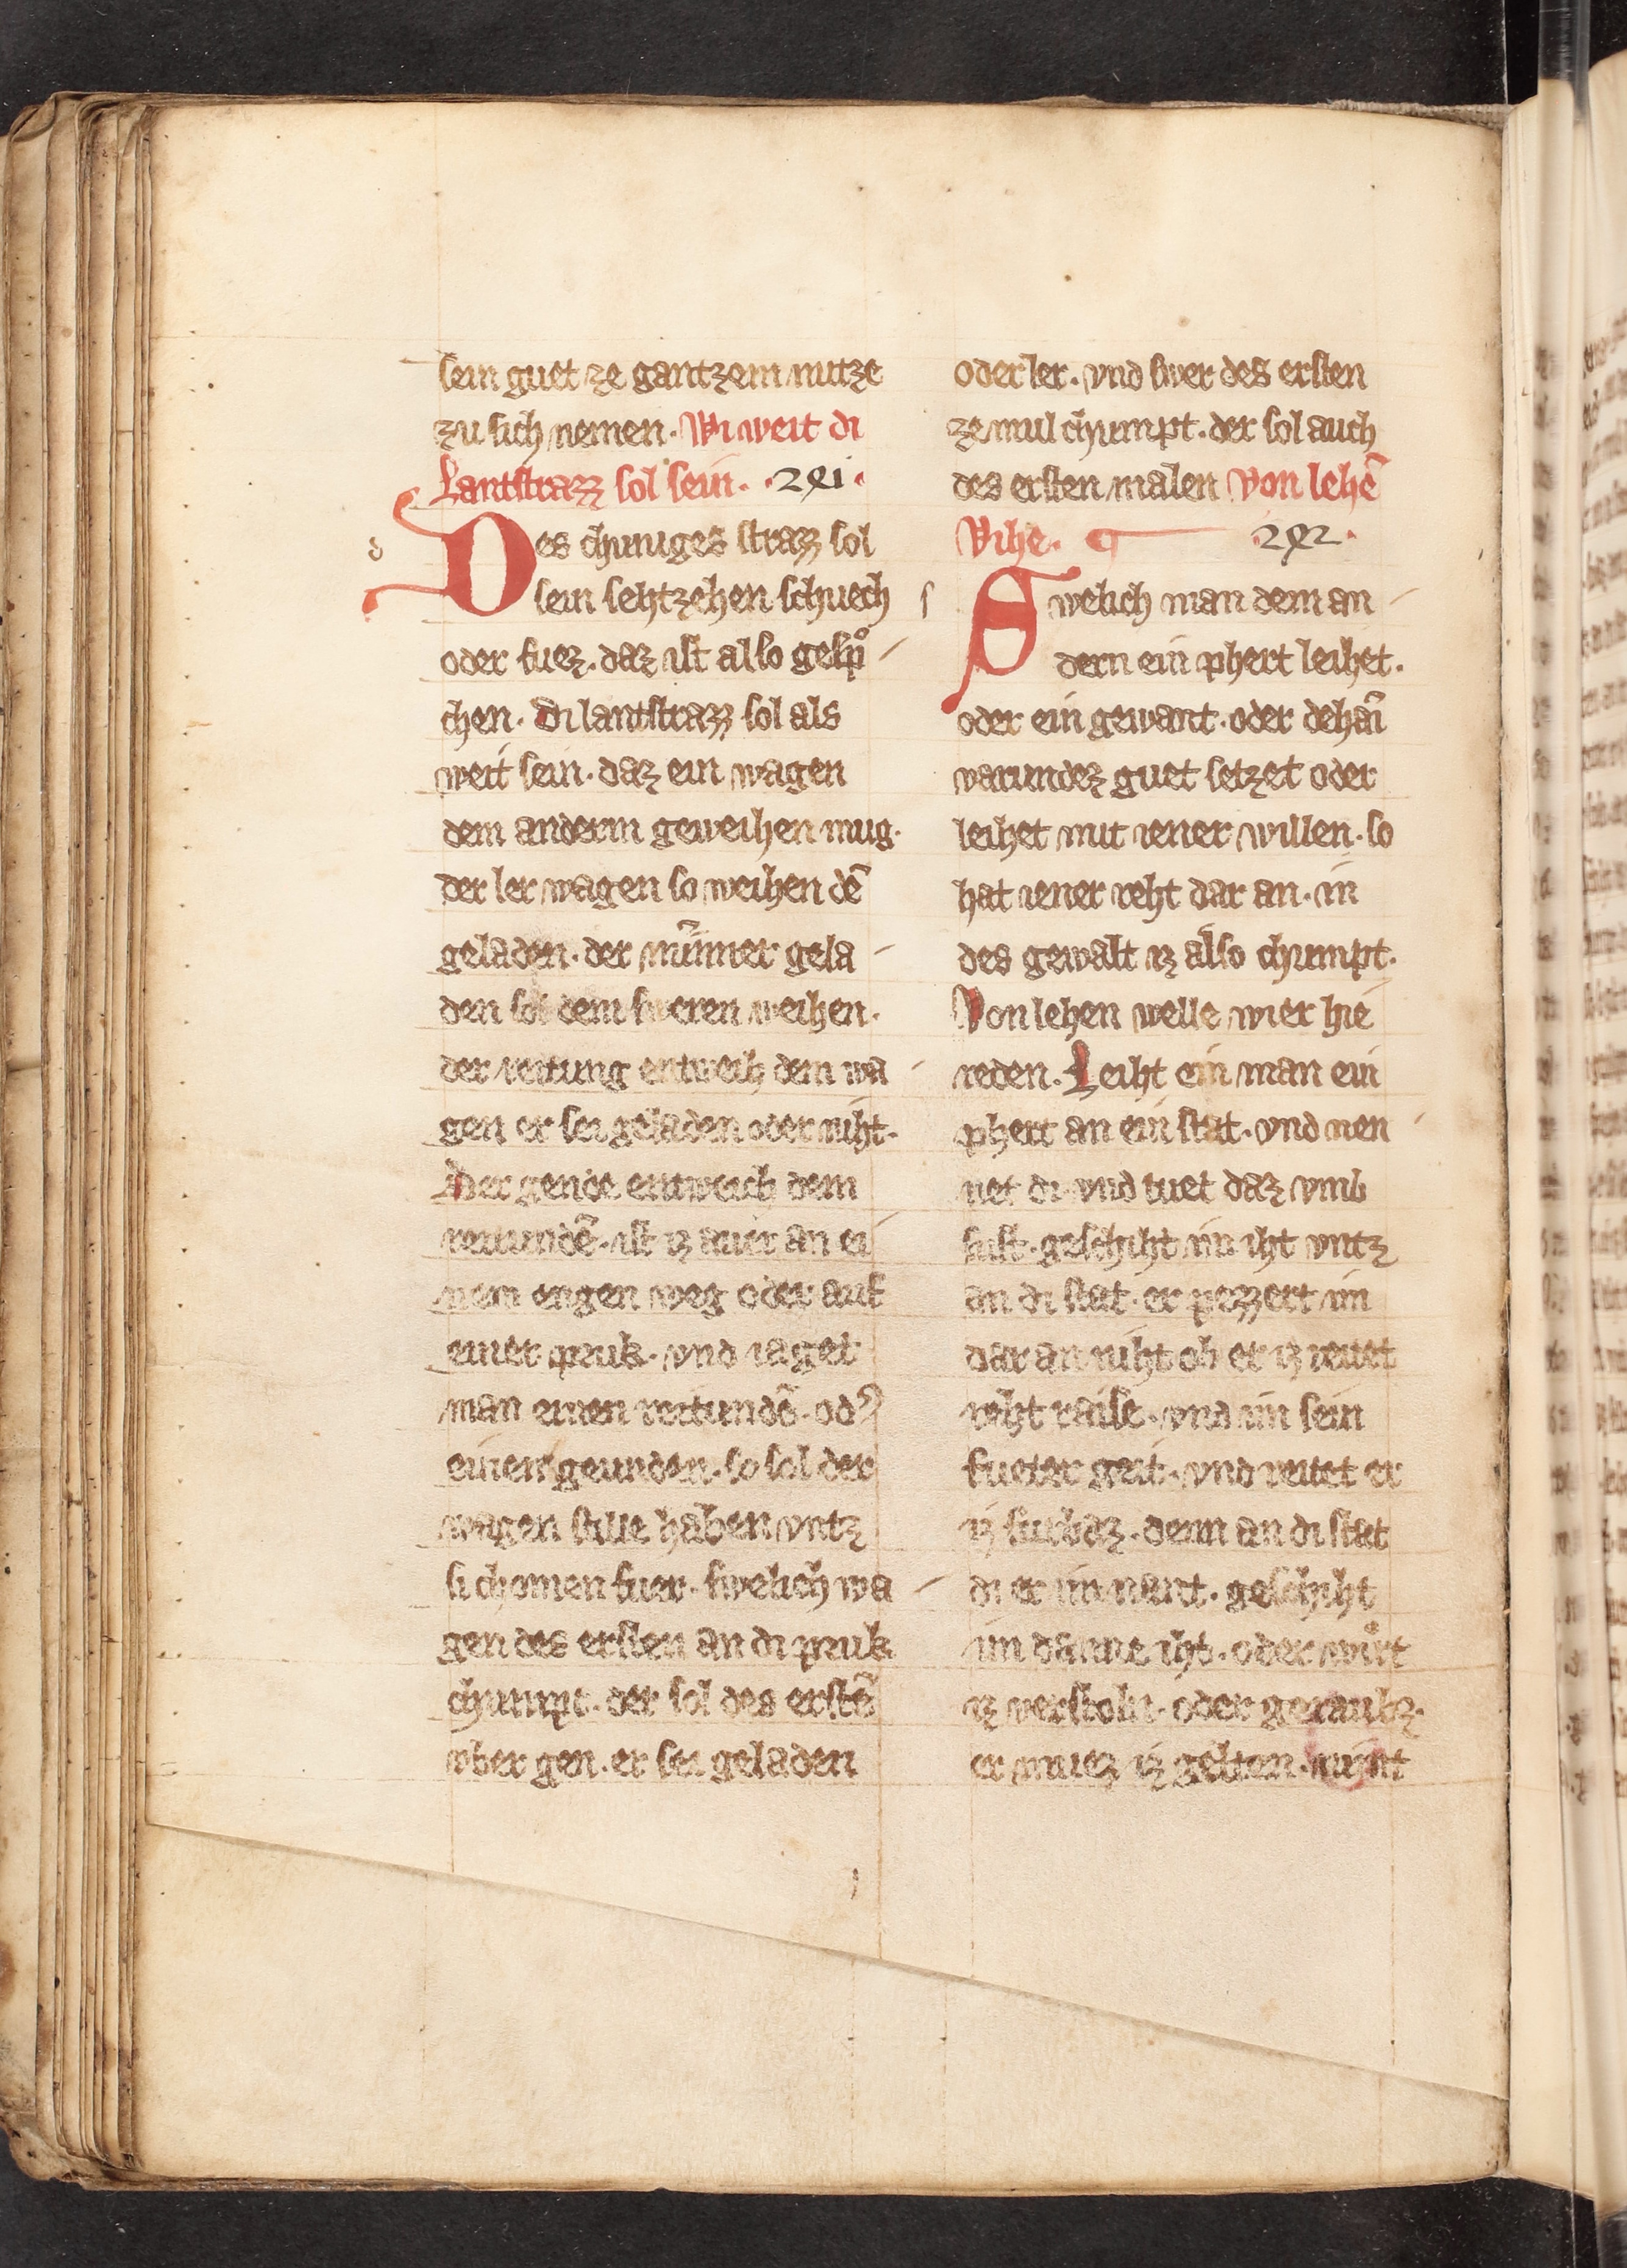 sein guet ze gantzem nutze
zu sich nemen. Wi weit di
Lantstrazz sol sein. .2Qi.
d
Des chuniges straz sol
sein sehtzehen schuech
oder fuez. daz ist also gespͦ
chen. Di lantstrazz sol als
weit sein. daz ein wagen
dem anderm geweihen mug.
der ler wagen so weihen dē
geladen. der mīnner gela
den sol dem sweren weihen.
der reitung entweih dem wa
gen er sei geladen oder niht.
Der gende entweich dem
reitundē. ist iz auer an ei
nem engen weg oder auf
einer pruk. vnd iaget
man einen reitundē. od͛
einen geunden. so sol der
wagen stille haben vntz
si chomen fuer. swelich wa
gen des ersten an di pruk
chumpt. der sol des erstē
vber gen. er sei geladen
oder ler. vnd swer des ersten
ze mul chumpt. der sol auch
des ersten malen Von lehē
Vihe. .2Q2.
s
Swelich man dem an
dern ein phert leihet.
oder ein gewant. oder dehāi
varundez guet setzet oder
leihet mit iener willen. so
hat iener reht dar an. in
des gewalt iz also chumpt.
Von lehen welle wier hie
reden. Leiht ein man ein
phert an ein stat. vnd nen
net di vnd tuet daz vmb
sust. geschiht im iht vntz
an di stat. er pezzert im
dar an niht ob er iz reitet
reht raise. vnd im sein
fueter geit. vnd reitet er
iz furbaz. denn an di stat
di er im nant. geschiht
im danne iht. oder wirt
iz verstoln. oder geraubz.
er muez iz gelten. nimt